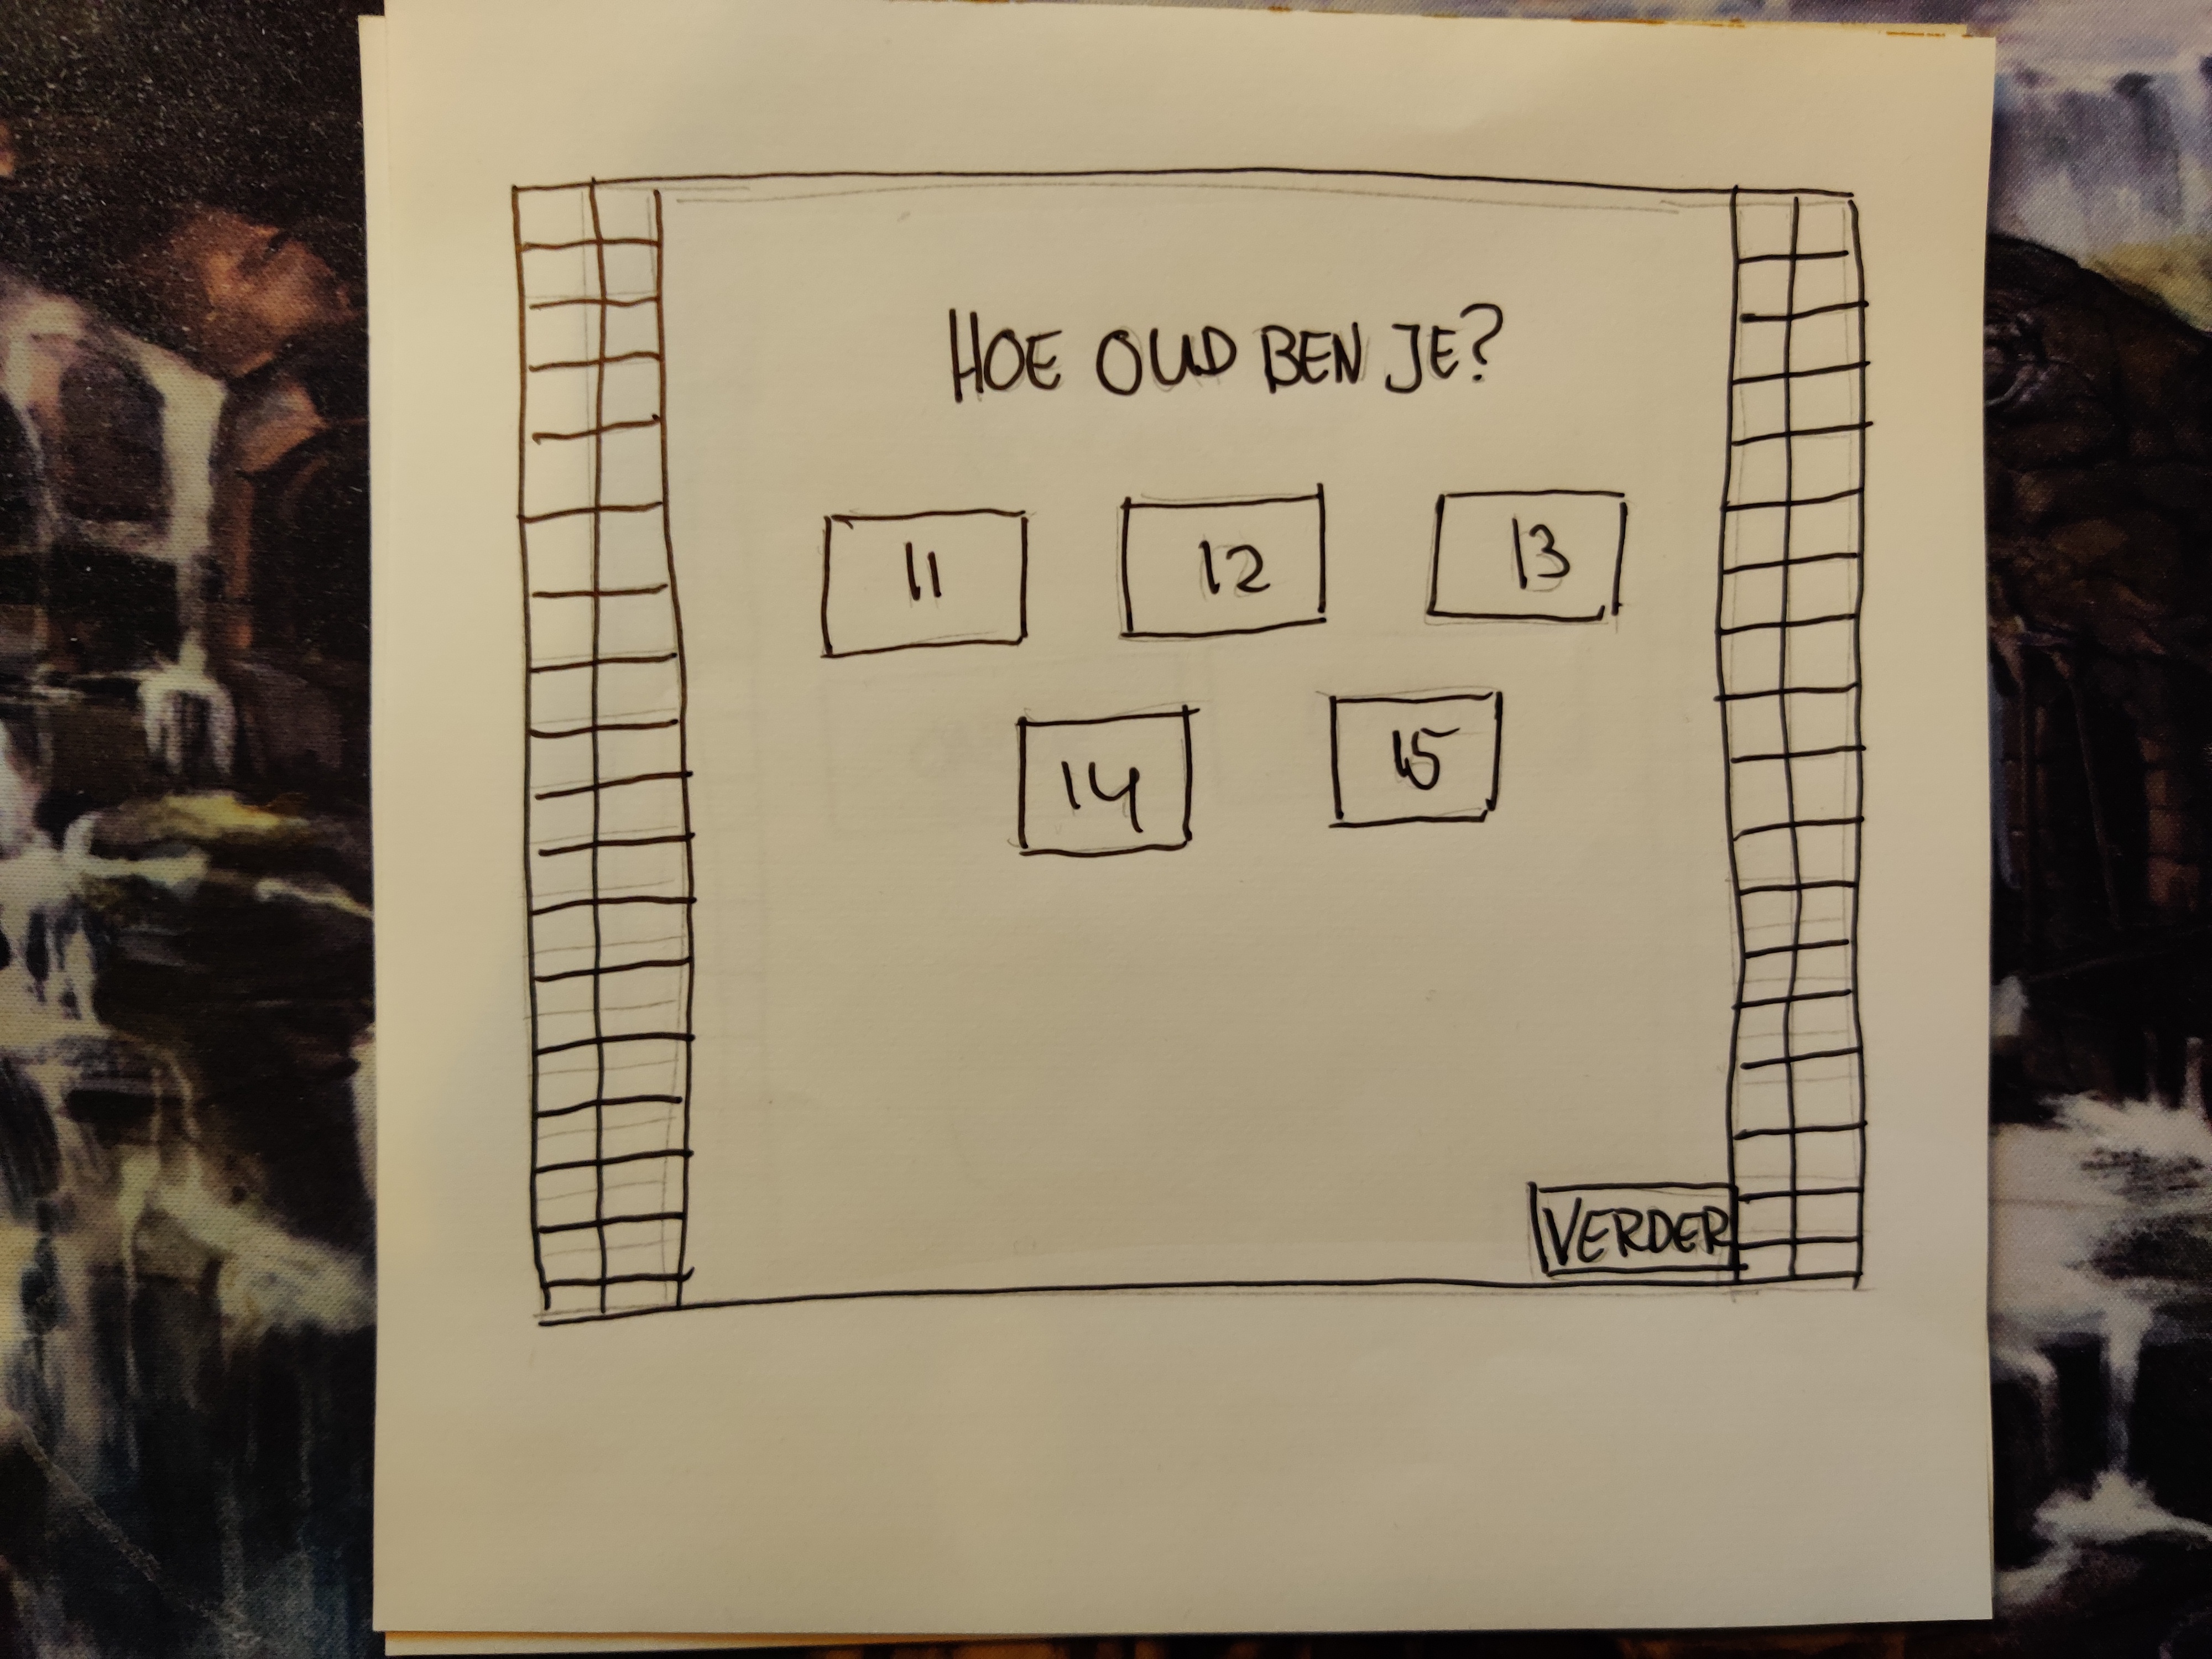 HOE OUD BEN JE?
11 12 13
14 15
VERDER